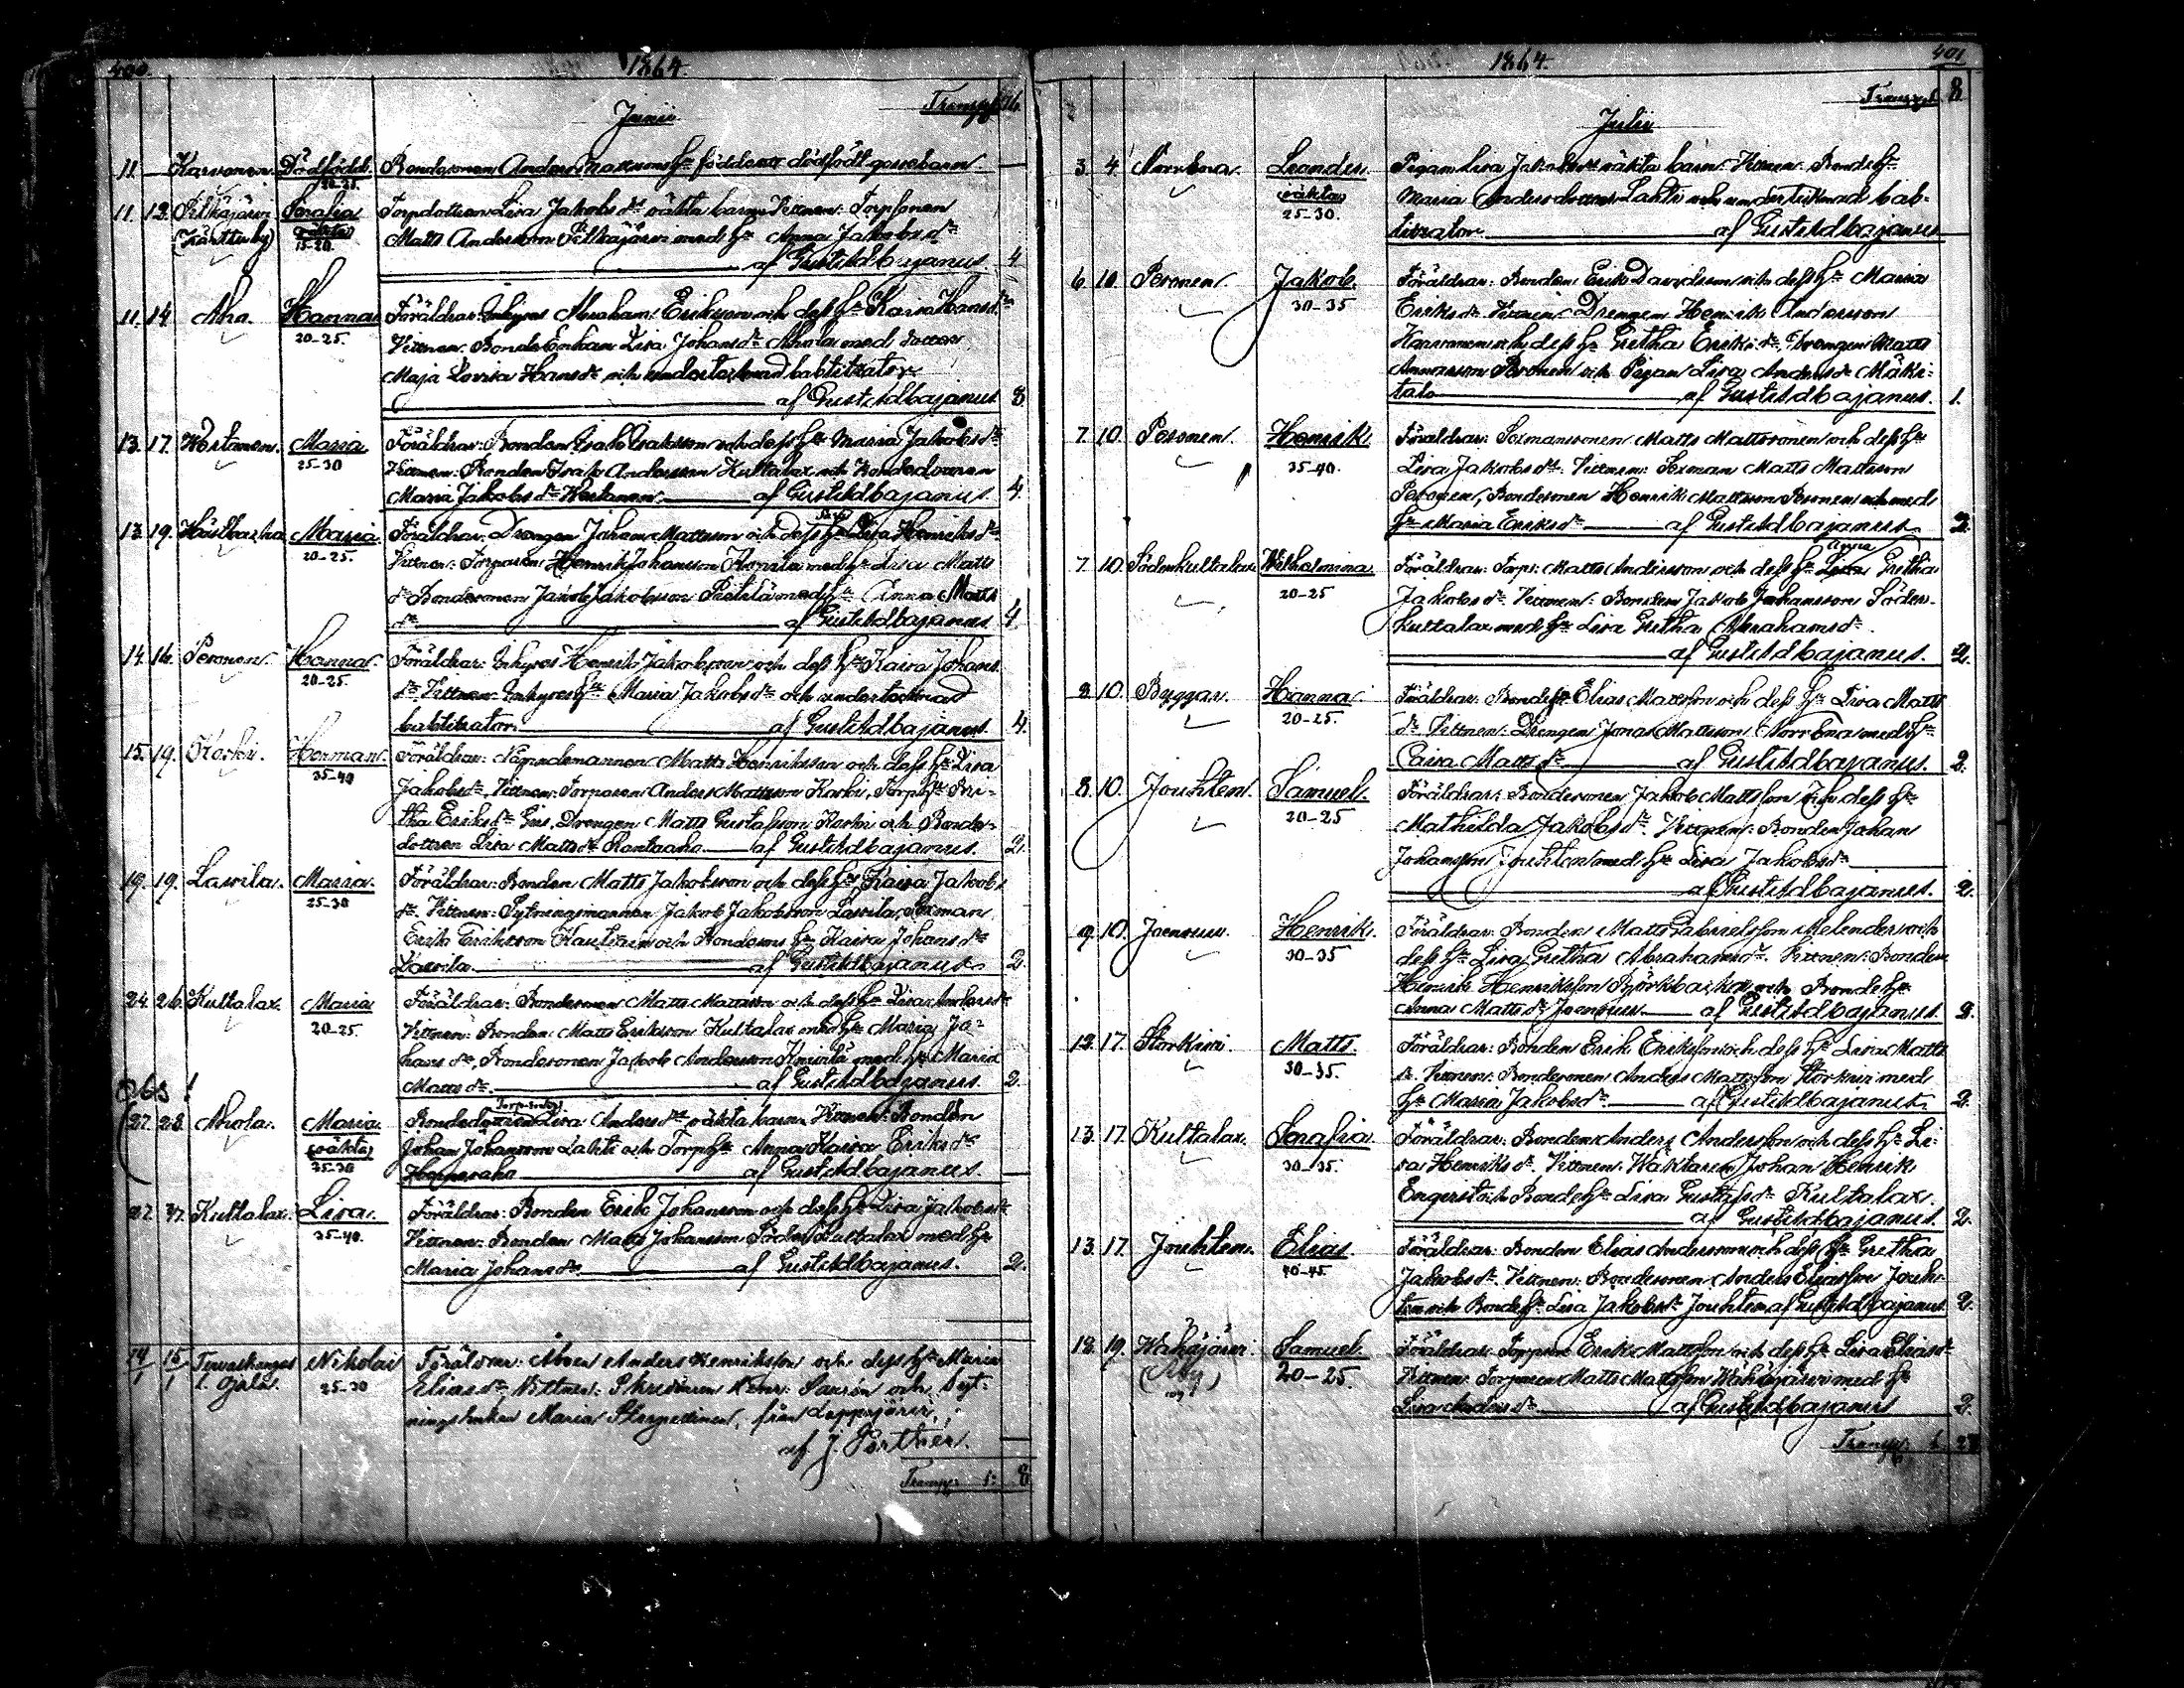 400.
1864.
Transp.
Junii
11 Karvonen. Dödfödd. Bondesonen Anders Mattssons Hu födde ett dödfödt gossebarn.
20-25.
11. 12. Pilkäjärvi Serafia Torpdottren Lisa Jakobs dr oäkta barn. Vittnen: Torpsonen
(Kärttuby) oäkta Matts Andersson Pilkäjärvi med Hu Anna Jakobs dr
15-20. af Gust. Idbajanus. 4
11. 14. Aho. Hanna Föräldrar: Inhyses Abraham Eriksson och dess Hu Kaisa Hansdr
20-25. Vittnen: Bonde Enkan Lisa Johans dr Ahola med
Maja Lovisa Hans dr och undertecknad babtitzator
af Gust. Idbajanus 3.
13. 17. Maria Föräldrar: Bonden Isak Isaksson och dess Hu Maria Jakobs dr
25-30 Vittnen: Bonden Isak Andersson Kultalax och Bondedottren
Maria Jakobs dr af Gust. Idbajanus 4.
13. 19. Hästbacka Maria. Föräldrar: Drengen Johan Mattsson och dess Hu Lisa Henriks dr
20-25. Vittnen: Torparen Henrik Johansson med Hu Lisa Matts
dr Bondesonen Jakob Jakobsson Pietilä med Hu Anna Matts
dr af Gust. Idbajanus 4
14. 16. Peronen. Hanna. Föräldrar: Inhyses Henrik Jakobsson och dess Hu Kaisa Johans
20-25. dr Vittnen: Inhyses Hu Maria Jakobs dr och undertecknad
babtitzator af Gust. Idbajanus. 4.
15. 19. Koski. Herman. Föräldrar: Nämndemannen Matts Henriksson och dess Hu Lisa
35-40 Jakobs dr, Vittnen: Torparen Anders Mattsson Koski, Torp Hu Gre-
tha Eriks dr Drengen Matts Gustafsson Koski och Bonde-
dottren Lisa Matts dr Rantaaho. af Gust. Idbajanus. 2.
19. 19. Lassila. Maria. Föräldrar: Bonden Matts Jakobsson och dess Hu Kaisa Jakobs
25-30 dr. Vittnen: Sytningsmannen Jakob Jakobsson Lassila, Sexman
Erik Eriksson och Bondesons Hu Kaisa Johans dr
Lassila. af Gust. Idbajanus. 2.
24. 26. Kultalax. Maria Föräldrar: Bondesonen Matts Mattsson och dess Hu Lisa Anders dr
20-25. Vittnen: Bonden Matts Eriksson Kultalax med Hu Maria Jo-
hans dr, Bondesonen Jakob Andersson med Hu Maria
Matts dr. af Gust. Idbajanus. 2.
Obs!
27. 28. Ahola. Maria Bondedottren Lisa Anders dr oäkta barn. Vittnen: Bonden
(oäkta) Johan Johansson Lahti och Torp Hu Anna Kaisa Eriks dr
25-30 af Gust. Idbajanus.
27. Kultalax. Lisa. Föräldrar: Bonden Erik Johansson och dess Hu Lisa Jakobs dr
35-40. Vittnen: Bonden Matts Johansson Söder Kultalax med Hu
Maria Johans dr. af Gust. Idbajanus. 2.
14/1 15/1 Terwaskangas Nikolai Föräldrar: Anders Henriksson och dess Hu Maria
25-30 Elias dr. Vittnen: och Syt-
ningsenkan Maria från Lappajärvi,
af J. Porthen.
Transp. 1: 8

1864. 401
Transp. 8
Julii
3. 4. Norrbna. Leander. Pigan Lisa Jakobs dr oäkta barn. Vittnen: Bonde Hu
oäkta Maria Andersdotter Lahti och undertecknad bab-
25-30. titzator. af Gust. Idbajanus
6. 10. Peronen. Jakob. Föräldrar: Bonden Erik Davidsson och dess Hu Maria
30-35 Eriks dr. Vittnen: Drengen Henrik Andersson
Karvonen och dess Hu Gretha Eriks dr, Drengen Matts
Andersson Peronen och Pigan Lisa Anders dr Mäki-
talo af Gust. Idbajanus. 1.
7. 10. Peronen. Henrik. Föräldrar: Sexmanssonen Matts Mattsson och dess Hu
35-40. Lisa Jakobs dr. Vittnen: Sexman Matts Mattsson
Peronen, Bondesonen Henrik Mattsson Peronen och med
Hu Maria Eriks dr af Gust. Idbajanus. 2.
7. 10. Söderkultalax Wilhelmina Föräldrar: Torp: Matts Andersson och dess Hu Anna Gretha
20-25 Jakobs dr. Vittnen: Bonden Jakob Johansson Söder-
kultalax med Hu Lisa Gretha Abrahams dr.
af Gust. Idbajanus. 2.
8. 10. Byggar. Hanna. Föräldrar: Bonde Elias Mattsson och dess Hu Lisa Matts
20-25. dr. Vittnen: Drengen Jonas Mattsson Norrbna med Hu
Caisa Matts dr. af Gust. Idbajanus. 2.
8. 10. Jouhten. Samuel. Föräldrar: Bondesonen Jakob Mattsson och dess Hu
20-25 Mathilda Jakobs dr. Vittnen: Bonden Johan
Johansson Jouhten med Hu Lisa Jakobs dr
af Gust. Idbajanus. 2.
9. 10. Joensuu. Henrik. Föräldrar: Bonden Matts Gabrielsson Melender och
30-35 dess Hu Lisa Gretha Abrahams dr. Vittnen: Bonden
Henrik Henriksson Björkbacka och Bonde Hu
Anna Matts dr Joensuu. af Gust. Idbajanus. 2.
12. 17. Storkivi. Matts. Föräldrar: Bonden Erik Eriksson och dess Hu Lisa Matts
30-35. dr. Vittnen: Bondesonen Anders Mattsson Storkivi med
Hu Maria Jakobs dr. af Gust. Idbajanus. 2.
13. 17. Kultalax. Serafia. Föräldrar: Bonden Anders Andersson och dess Hu Li-
30-35. sa Henriks dr. Vittnen: Wäktaren Johan Henrik
Engvist och Bonde Hu Lisa Gustafs dr Kultalax.
af Gust. Idbajanus. 2.
13. 17. Jouhten. Elias. Föräldrar: Bonden Elias Andersson och dess Hu Gretha
40-45. Jakobs dr. Vittnen: Bondesonen Anders Eliasson Jouh-
ten och Bonde Hu Lisa Jakobs dr Jouhten af Gust. Idbajanus. 2.
18. 19. Wähäjärvi Samuel. Föräldrar: Torparen Erik Mattsson och dess Hu Lisa Elias dr
(Åby) 20-25. Vittnen: Torparen Matts Mattsson Wähäjärvi med Hu
Lisa Anders dr. af Gust. Idbajanus 2.
Transp.